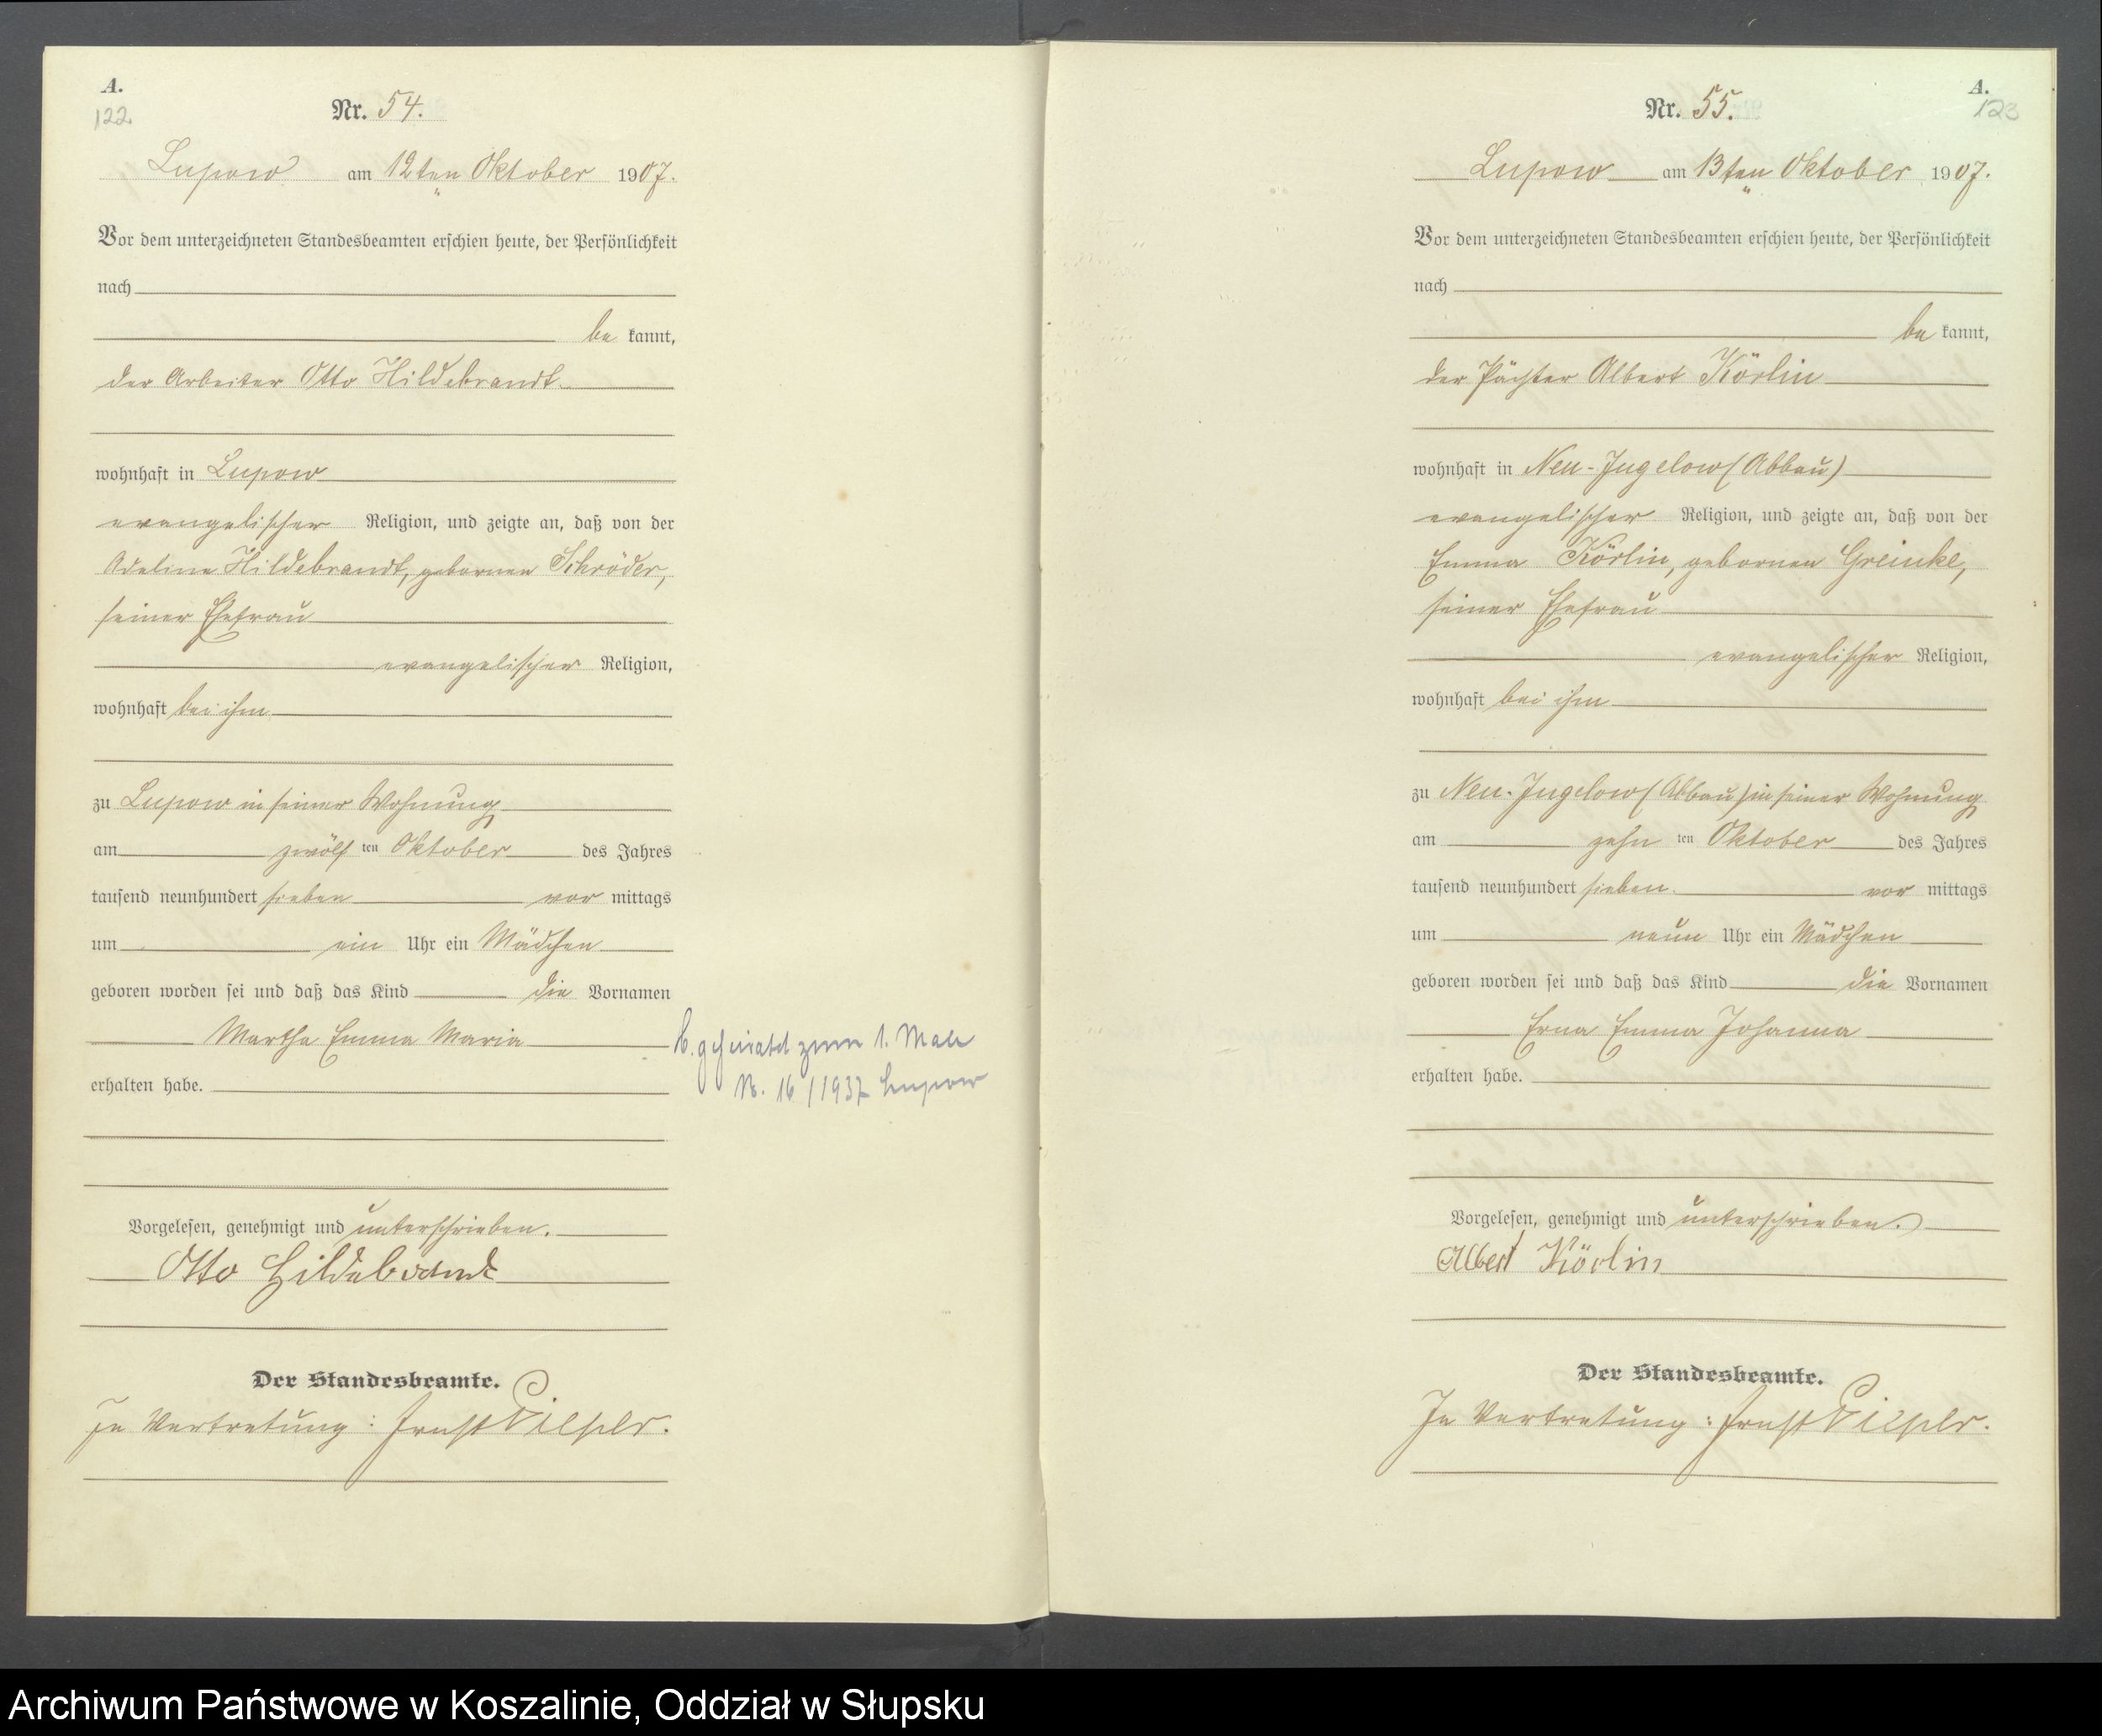 A.
122.
Nr. 54.
Lupow am 12ten Oktober 1907.
Vor dem unterzeichneten Standesbeamten erschien heute, der Persönlichkeit
nach
be kannt,
der Arbeiter Otto Hildebrandt
wohnhaft in Lupow
evangelischer Religion, und zeigte an, daß von der
Adeline Hildebrandt, gebornen Schröder,
seiner Ehefrau
evangelischer Religion,
wohnhaft bei ihm
zu Lupow in seiner Wohnung
am zwölf ten Oktober des Jahres
tausend neunhundert sieben vor mittags
um ein Uhr ein Mädchen
geboren worden sei und daß das Kind die Vornamen
Martha Emma Maria
erhalten habe.
geheiratet zum 1. Male
Nr. 16/1937 Lupow
Vorgelesen, genehmigt und unterschrieben.
Otto Hildebrandt
Der Standesbeamte.
In Vertretung: Ernst
A.
123
Nr. 55.
Lupow am 13ten Oktober 1907.
Vor dem unterzeichneten Standesbeamten erschien heute, der Persönlichkeit
nach
be kannt,
der Pächter Albert Körlin
wohnhaft in Neu-Jugelow (Abbau)
evangelischer Religion, und zeigte an, daß von der
Emma Körlin, gebornen Greinke,
seiner Ehefrau
evangelischer Religion,
wohnhaft bei ihm
zu Neu-Jugelow (Abbau) in seiner Wohnung
am zehn ten Oktober des Jahres
tausend neunhundert sieben vor mittags
um neun Uhr ein Mädchen
geboren worden sei und daß das Kind die Vornamen
Erna Emma Johanna
erhalten habe.
Vorgelesen, genehmigt und unterschrieben.
Albert Körlin
Der Standesbeamte.
In Vertretung: Ernst
Archiwum Państwowe w Koszalinie, Oddział w Słupsku